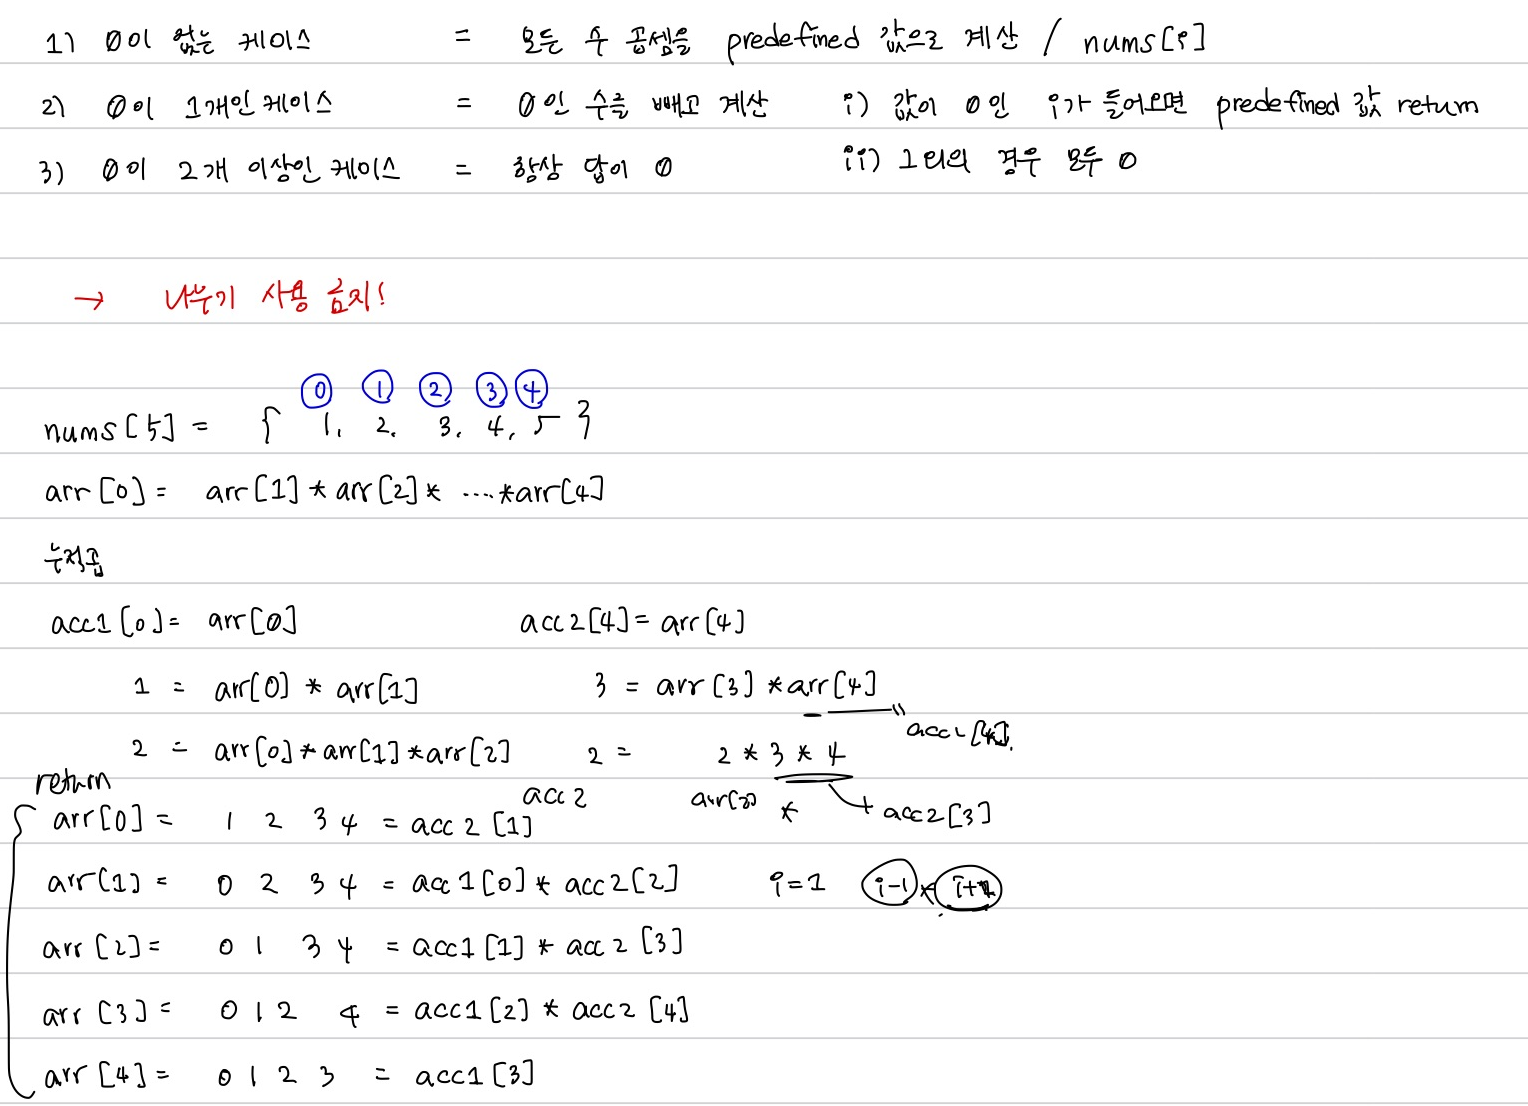 1) 0이 없는 케이스 = 모든 수 곱셈을 predefined 값으로 계산 / nums[i]
2) 0이 1개인 케이스 = 0인 수를 빼고 계산 i) 값이 0인 i가 들어오면 predefined 값 return
3) 0이 2개 이상인 케이스 = 항상 답이 0 ii) 그 외의 경우 모두 0
→ 나누기 사용 금지!
0 1 2 3 4
nums[5] = { 1, 2, 3, 4, 5 }
arr[0] = arr[1] * arr[2] * .... * arr[4]
누적곱
acc1[0] = arr[0] acc2[4] = arr[4]
1 = arr[0] * arr[1] 3 = arr[3] * arr[4]
acc2[4].
2 = arr[0] * arr[1] * arr[2] 2 = 2 * 3 * 4
return
acc2 arr[2] * → acc2[3]
arr[0] = 1 2 3 4 = acc2[1]
arr[1] = 0 2 3 4 = acc1[0] * acc2[2] i=1 i-1 * i+1
arr[2] = 0 1 3 4 = acc1[1] * acc2[3]
arr[3] = 0 1 2 4 = acc1[2] * acc2[4]
arr[4] = 0 1 2 3 = acc1[3]